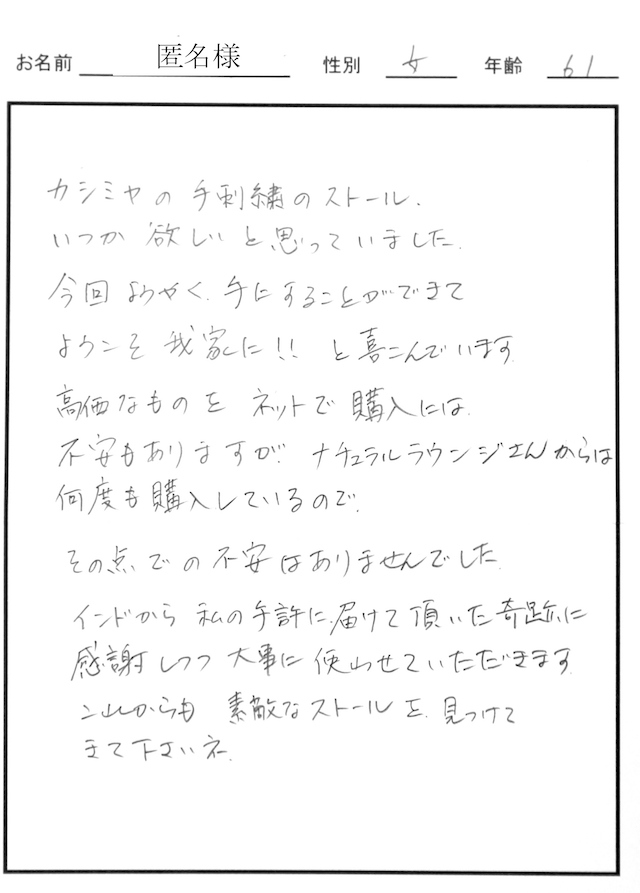 お名前 匿名様 性別 女 年齢 61
カシミヤの手刺繍のストール.
いつか欲しいと思っていました.
今回ようやく.手にすることができて
ようこそ我家に!! と喜こんでいます.
高価なものを ネットで購入には.
不安もありますが. ナチュラルラウンジさんからは
何度も購入しているので.
その点での不安はありませんでした.
インドから 私の手許に.届けて頂いた奇跡に
感謝しつつ 大事に使わせていただきます.
これからも 素敵なストールを.見つけて
きて下さいネ.